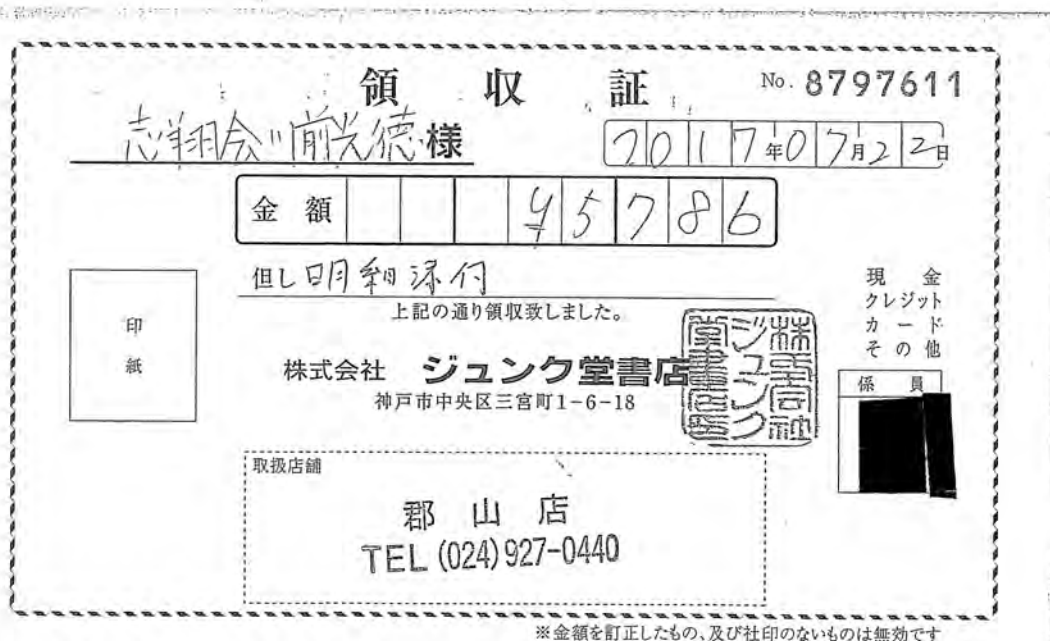 領収証
No. 8797611
志翔会 川前光徳様
2017年07月22日
金額 ¥45786
但し 明細添付
上記の通り領収致しました。
現金
クレジット
カード
その他
印紙
株式会社 ジュンク堂書店
神戸市中央区三宮町1-6-18
株式会社ジュンク堂書店印
係員
取扱店舗
郡山店
TEL (024)927-0440
※金額を訂正したもの、及び社印のないものは無効です